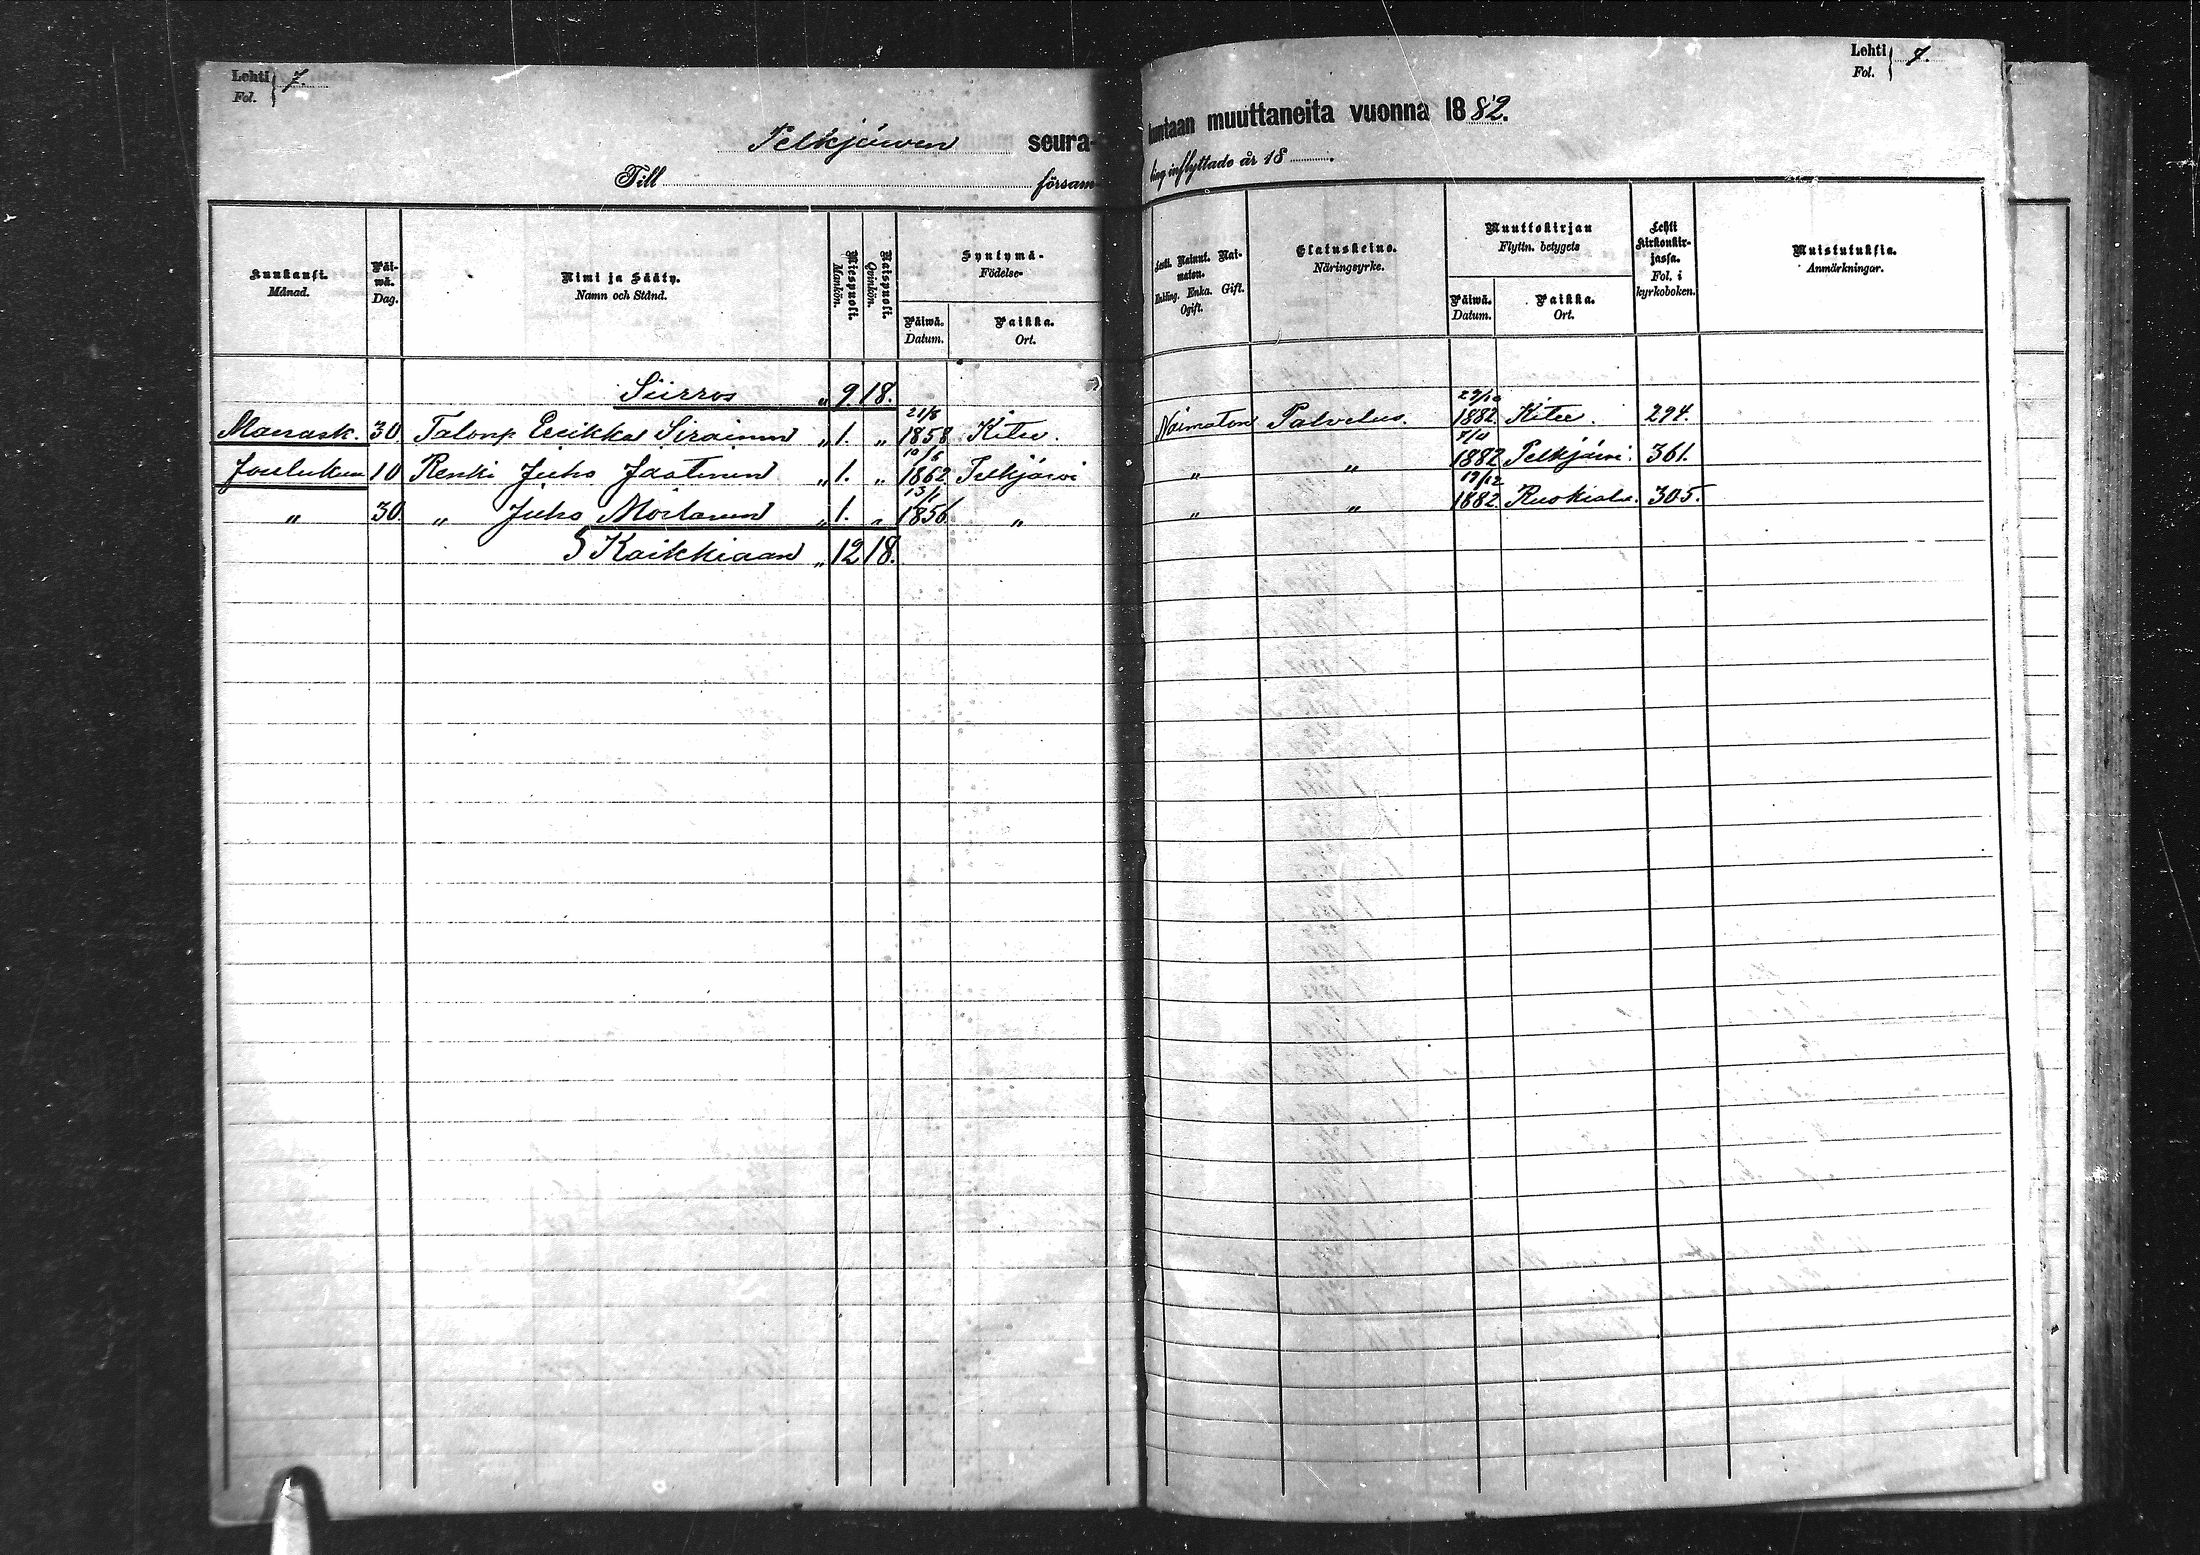 Lehti Fol. 7.
Pelkjärven seura-
Till försam-
Kuukausi. Månad.
Päiwä. Dag.
Nimi ja Sääty. Namn och Stånd.
Miespuoli. Mankön.
Naispuoli. Qvinkön.
Syntymä- Födelse-
Päiwä. Datum.
Paikka. Ort.
Siirros „ 9 18.
Marrask. 30 Talonp. Eeikka Siroinen „ 1. „ 21/8 1858 Kitee.
Joulukuu 10 Renki Juho Jaatinen „ 1. „ 10/6 1862 Pelkjärvi
„ 30. „ Juho „ 1. „ 13/1 1856. „
S Kaikkiaan „ 12 18.
Lehti Fol. 7.
kuntaan muuttaneita vuonna 1882.
ling inflyttade år 18 .
Leski. Enkling. Enka.
Nainut. Gift.
Naimaton. Ogift.
Elatuskeino. Näringsyrke.
Muuttokirjan Flyttn. betygets
Päiwä. Datum.
Paikka. Ort.
Lehti kirkonkirjassa. Fol. i kyrkoboken.
Muistutuksia. Anmärkningar.
Naimaton Palvelus. 29/10 1882. Kitee. 294.
„ „ 7/11 1882 Pelkjärvi. 361.
„ „ 19/12 1882. Ruskiala. 305.